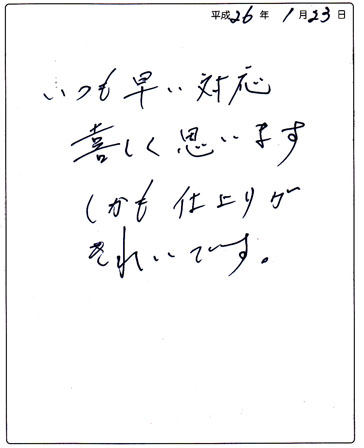 平成26年 1月23日
いつも早い対応
喜しく思います
しかも仕上りが
きれいです。